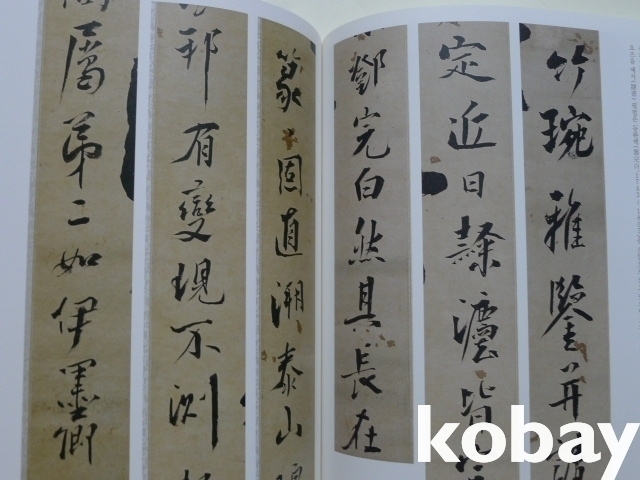 竹琬雅鑒并
定近日隸灋皆
鄧完白然其長在
篆固直溯泰山
邪有變現不測
屬第二如伊墨卿
kobay